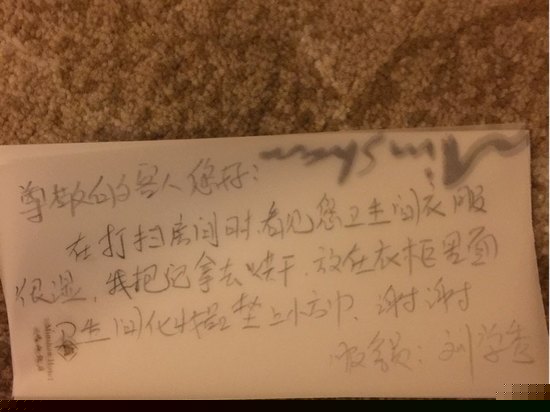 尊敬的客人您好：
在打扫房间时看见您卫生间衣服
很湿，我把它拿去烘干，放在衣柜里面
卫生间化妆品垫上小方巾、谢谢
服务员：刘学